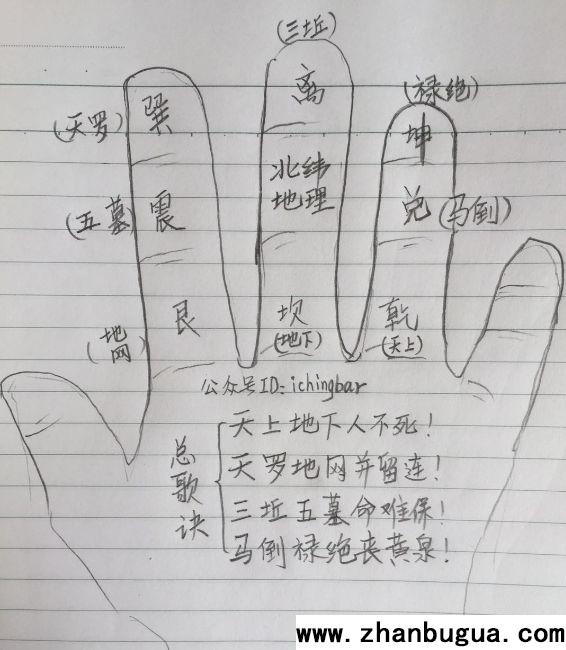 (三坵)
(禄绝)
(天罗) 巽 离 坤
(五墓) 震 北纬 兑 (马倒)
地理
(地网) 艮 坎 乾
(地下) (天上)
公众号ID:ichingbar
总歌诀
天上地下人不死!
天罗地网并留连!
三坵五墓命难保!
马倒禄绝丧黄泉!
www.zhanbugua.com